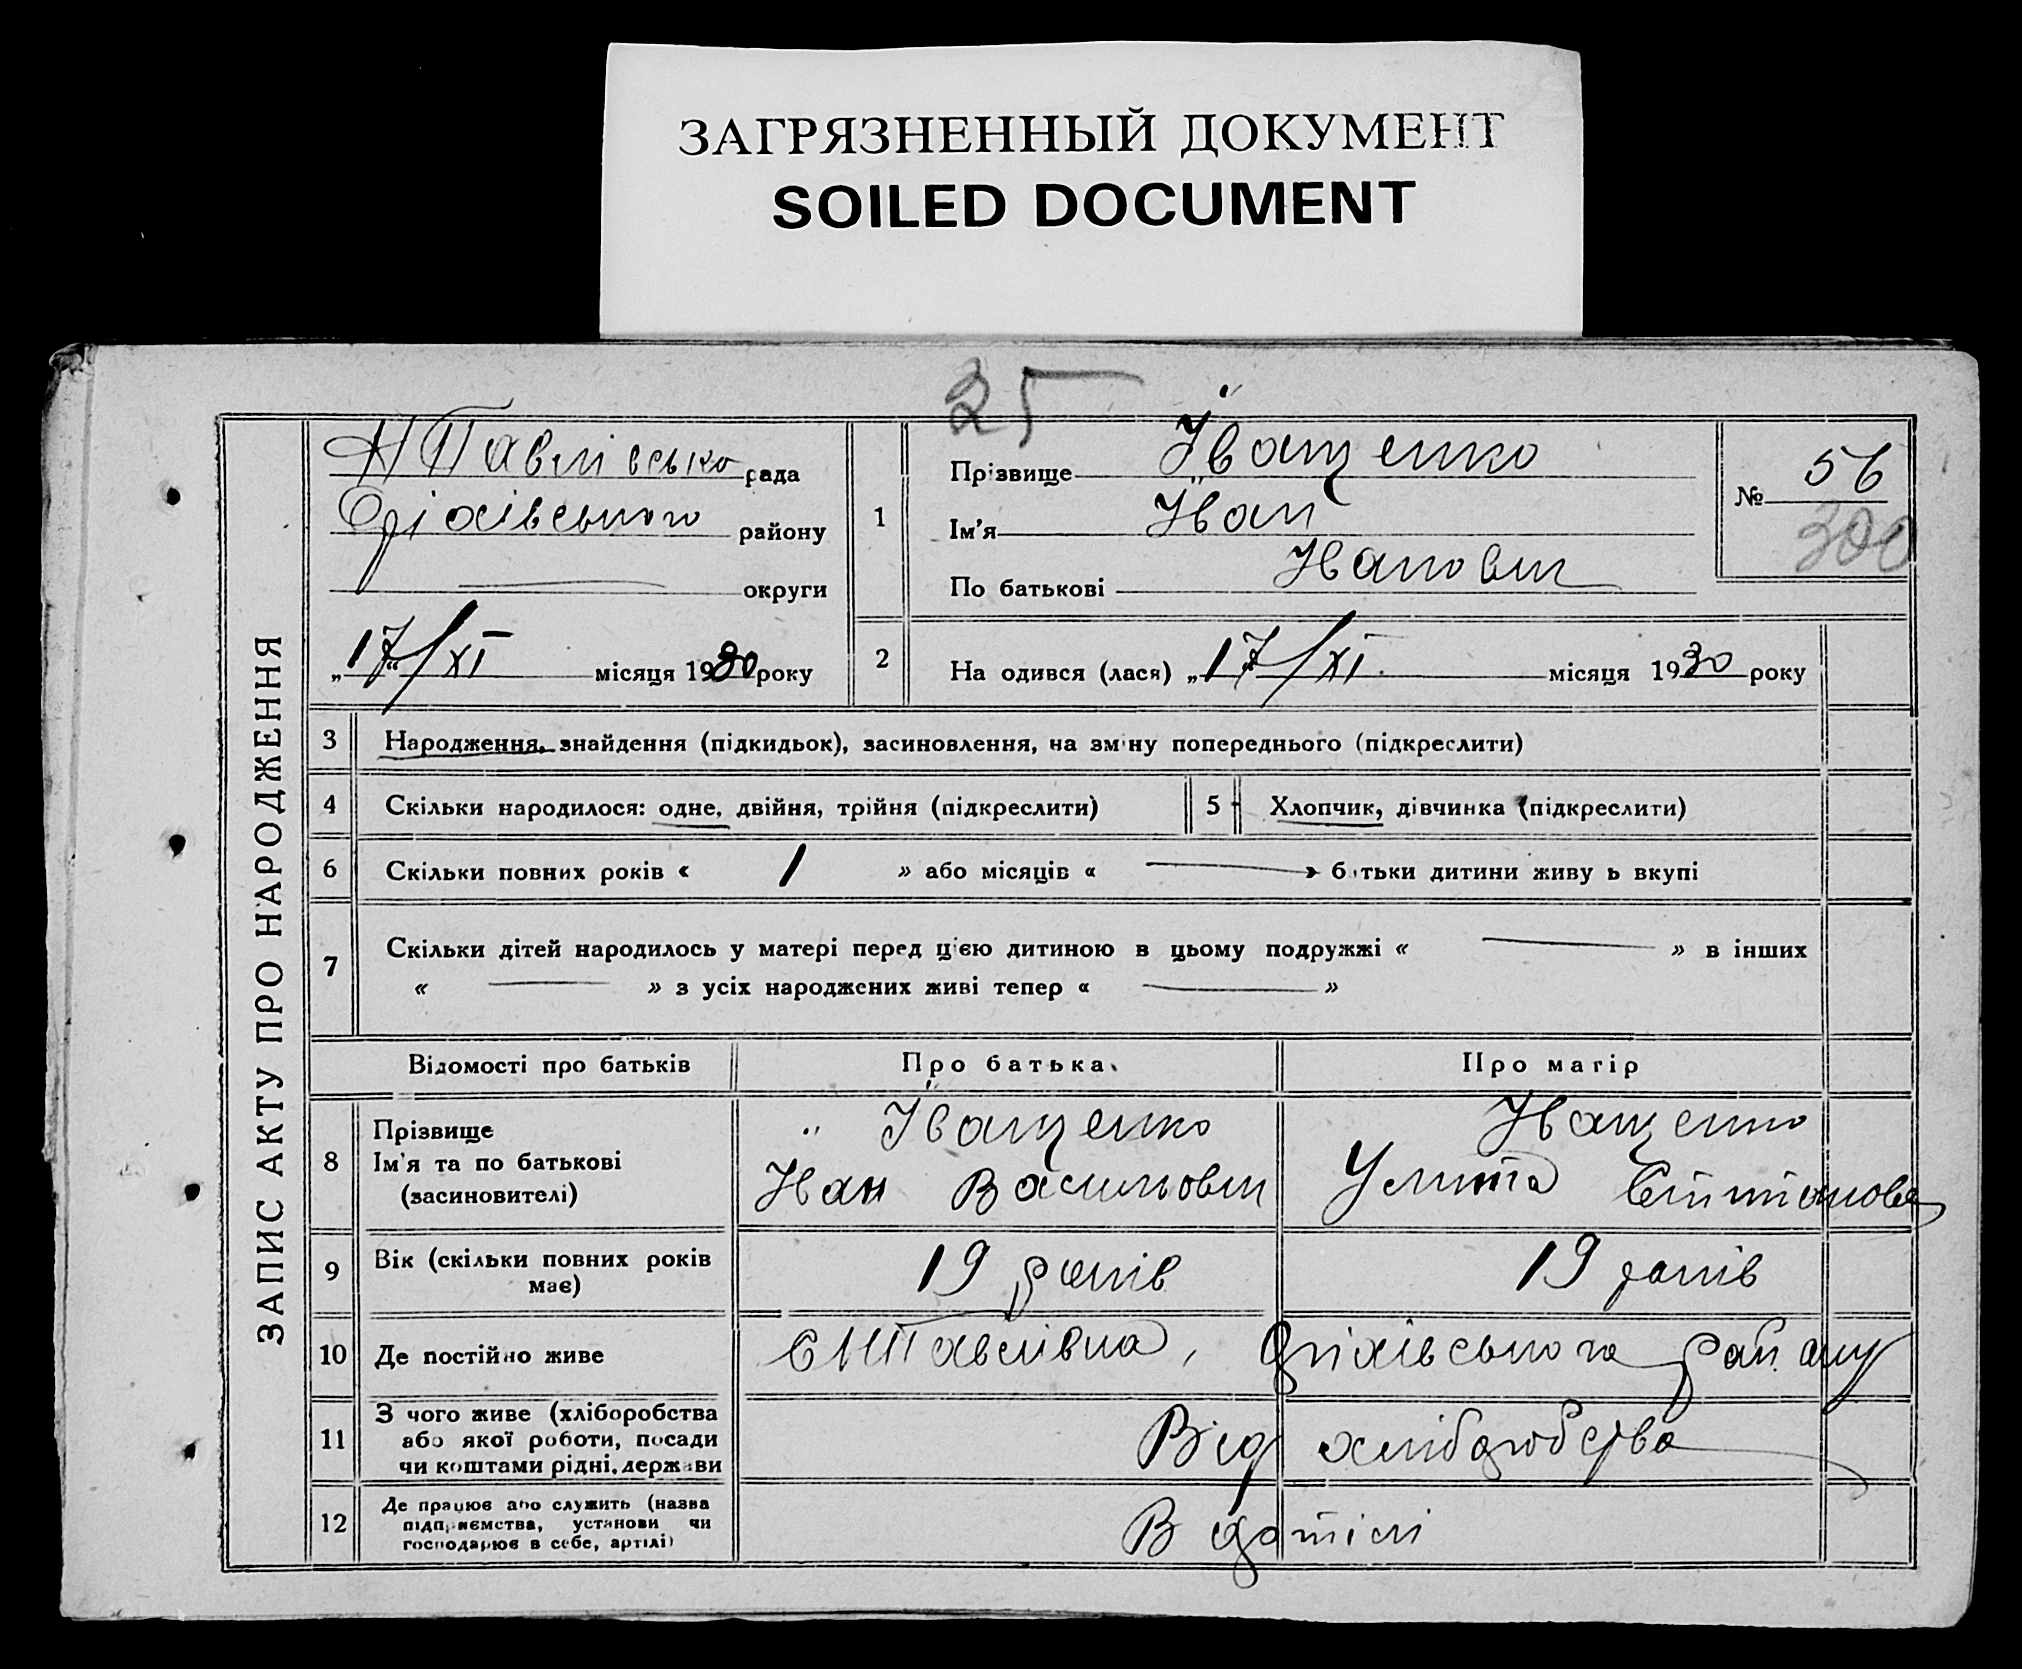 ЗАГРЯЗНЕННЫЙ ДОКУМЕНТ
SOILED DOCUMENT
25
ЗАПИС АКТУ ПРО НАРОДЖЕННЯ
Н Павлівсько рада
Оріхівського району
округи
„17/XI місяця 1930 року
1
Прізвище Іващенко
Ім'я Іван
По батькові Іванович
№ 56
300
2
На одився (лася) „17/XI місяця 1930 року
3 Народження, знайдення (підкидьок), засиновлення, на зміну попереднього (підкреслити)
4 Скільки народилося: одне, двійня, трійня (підкреслити)
5 Хлопчик, дівчинка (підкреслити)
6 Скільки повних років « 1 » або місяців « — » батьки дитини живуть вкупі
7 Скільки дітей народилось у матері перед цією дитиною в цьому подружжі « — » в інших
« — » з усіх народжених живі тепер « — »
Відомості про батьків Про батька Про матір
8 Прізвище
Ім'я та по батькові
(засиновителі)
Іващенко
Іван Васильович
Іващенко
Улита
9 Вік (скільки повних років
має)
19 років
19 років
10 Де постійно живе
С Н Павлівка, Оріхівського району
11 З чого живе (хліборобства
або якої роботи, посади
чи коштами рідні, держави
Від хліборобства
12 Де працює або служить (назва
підприємства, установи чи
господарює в себе, артілі)
В артілі